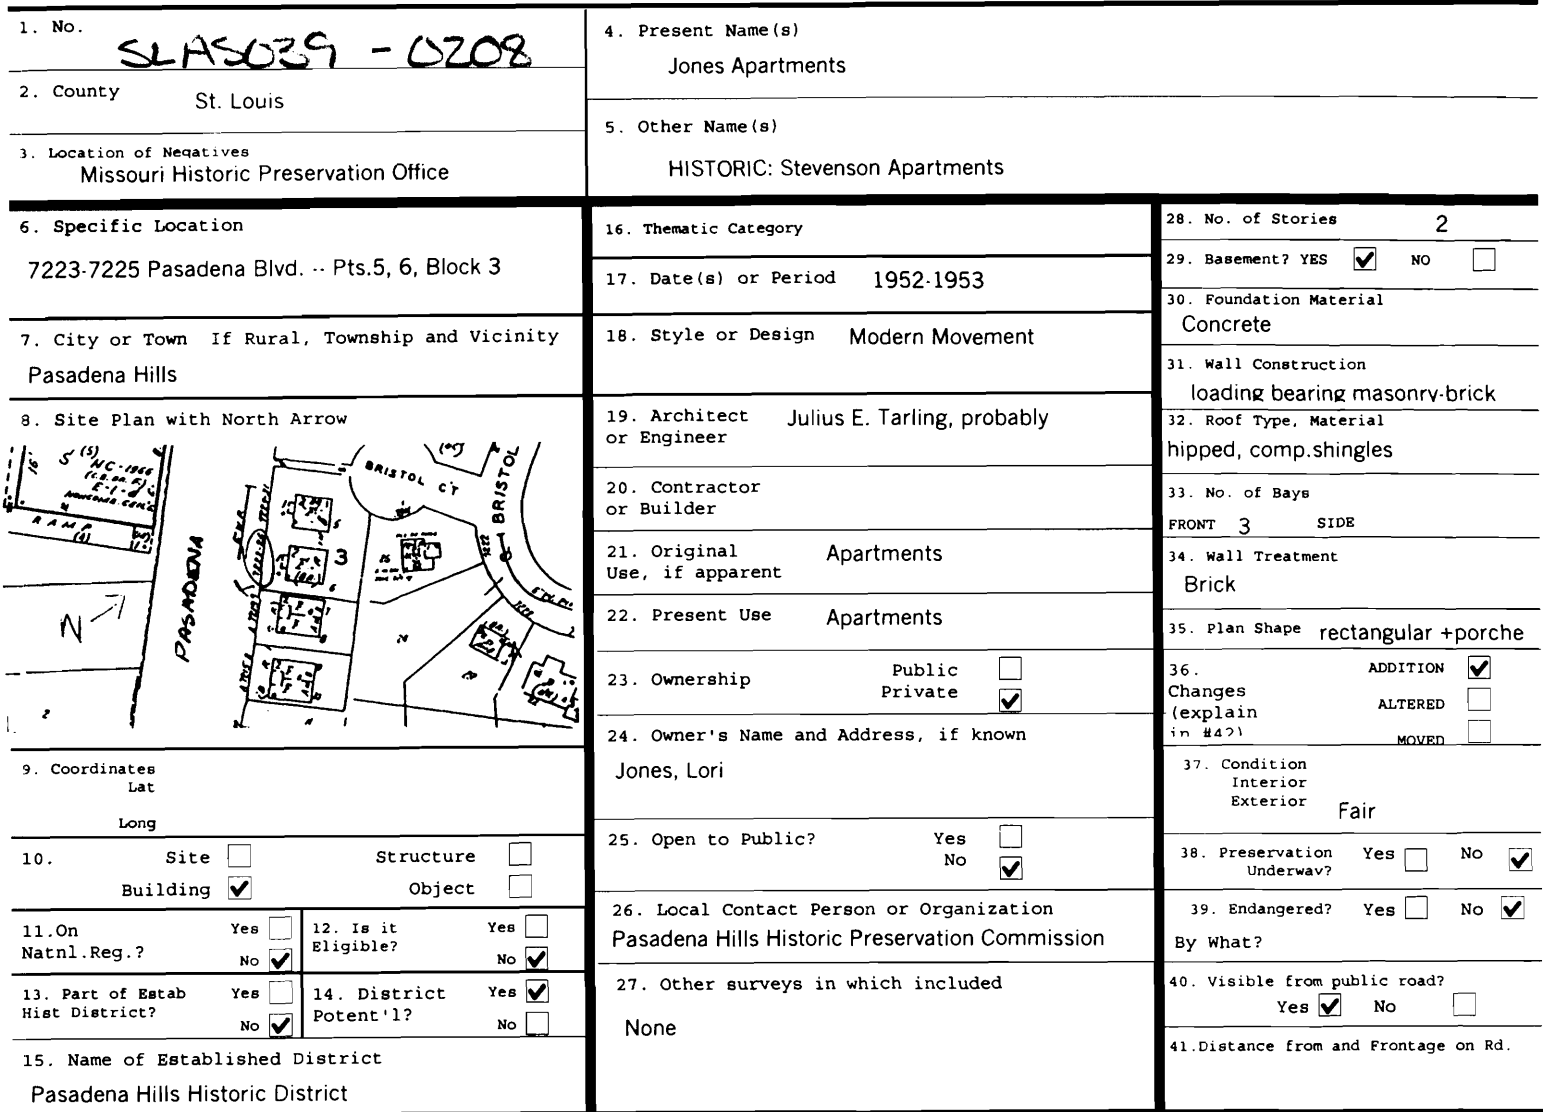 1. No.
SLAS039 - 0208
2. County
St. Louis
3. Location of Negatives
Missouri Historic Preservation Office
4. Present Name(s)
Jones Apartments
5. Other Name(s)
HISTORIC: Stevenson Apartments
6. Specific Location
7223-7225 Pasadena Blvd. -- Pts.5, 6, Block 3
7. City or Town If Rural, Township and Vicinity
Pasadena Hills
8. Site Plan with North Arrow
BRISTOL CT
BRISTOL
RAMP
PASADENA
N
3
9. Coordinates
Lat
Long
10. Site Structure
Building ✔ Object
11.On Yes
Natnl.Reg.? No ✔
12. Is it Yes
Eligible? No ✔
13. Part of Estab Yes
Hist District? No ✔
14. District Yes ✔
Potent'l? No
15. Name of Established District
Pasadena Hills Historic District
16. Thematic Category
17. Date(s) or Period 1952-1953
18. Style or Design Modern Movement
19. Architect Julius E. Tarling, probably
or Engineer
20. Contractor
or Builder
21. Original Apartments
Use, if apparent
22. Present Use Apartments
23. Ownership Public
Private ✔
24. Owner's Name and Address, if known
Jones, Lori
25. Open to Public? Yes
No ✔
26. Local Contact Person or Organization
Pasadena Hills Historic Preservation Commission
27. Other surveys in which included
None
28. No. of Stories 2
29. Basement? YES ✔ NO
30. Foundation Material
Concrete
31. Wall Construction
loading bearing masonry-brick
32. Roof Type, Material
hipped, comp.shingles
33. No. of Bays
FRONT 3 SIDE
34. Wall Treatment
Brick
35. Plan Shape rectangular +porche
36. ADDITION ✔
Changes
(explain ALTERED
in #42) MOVED
37. Condition
Interior
Exterior Fair
38. Preservation Yes No ✔
Underway?
39. Endangered? Yes No ✔
By What?
40. Visible from public road?
Yes ✔ No
41.Distance from and Frontage on Rd.